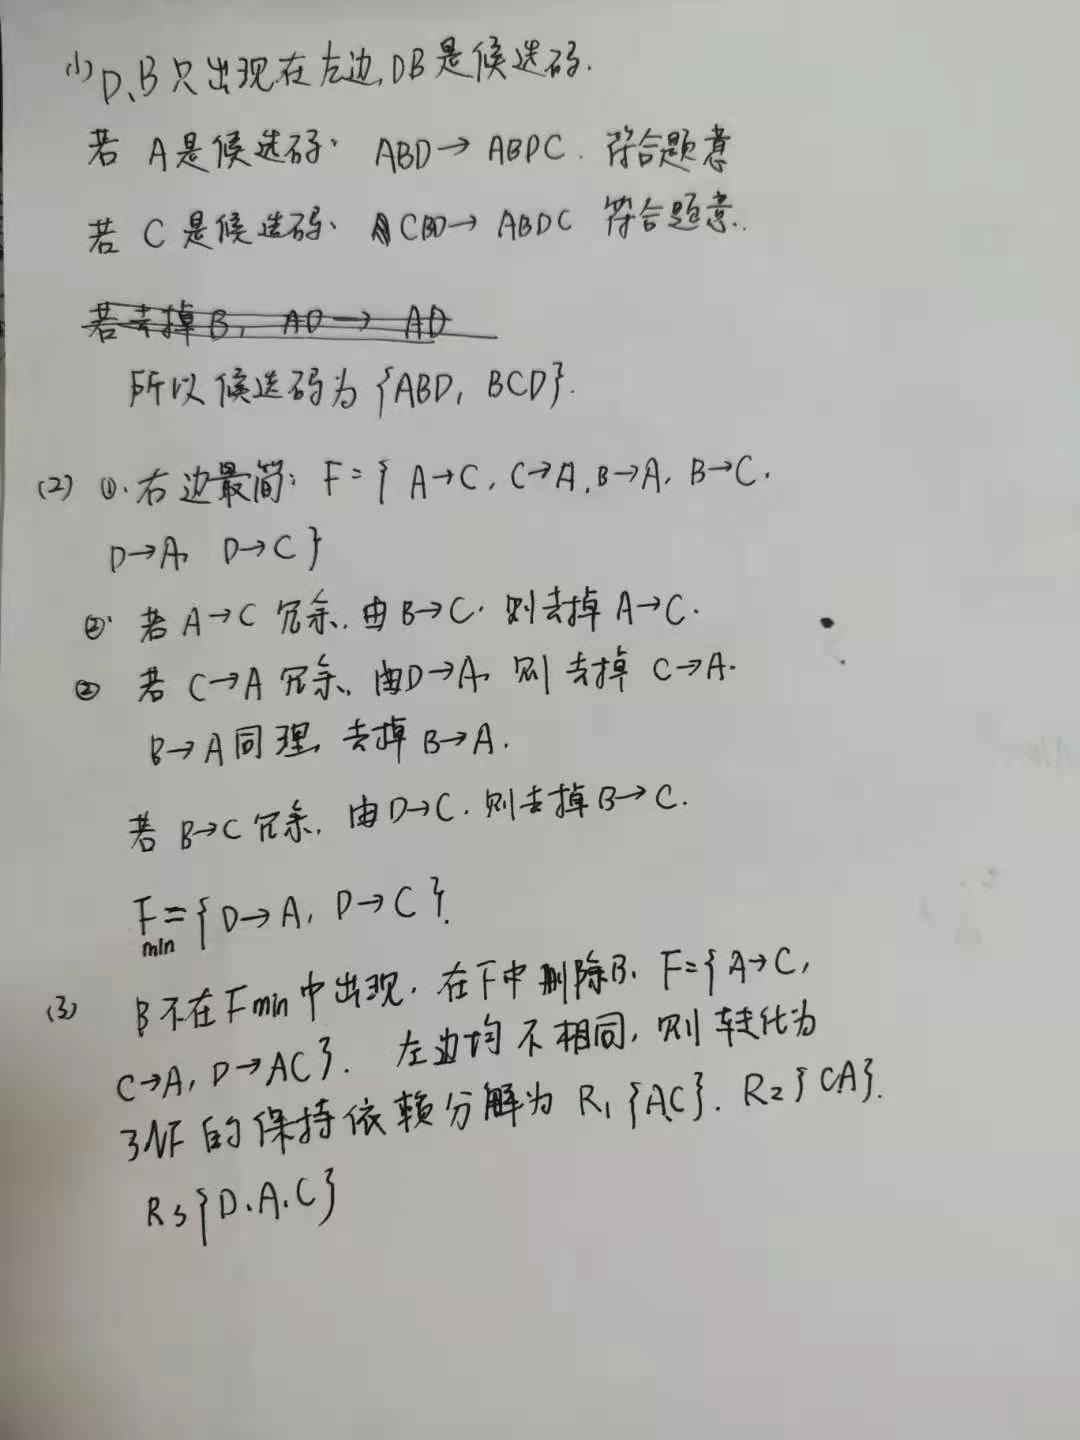 (1) D、B只出现在左边,DB是候选码.
若 A是候选码: ABD→ABDC. 符合题意
若 C是候选码: CBD→ABDC 符合题意.
若去掉B, AD→AD
所以候选码为{ABD, BCD}.
(2) ①.右边最简: F={A→C, C→A, B→A, B→C.
D→A, D→C}
②. 若A→C冗余.由B→C.则去掉A→C.
② 若C→A冗余、由D→A,则去掉C→A.
B→A同理,去掉B→A.
若B→C冗余,由D→C.则去掉B→C.
Fmin={D→A, D→C}.
(3) B不在Fmin中出现.在F中删除B. F={A→C,
C→A, D→AC}. 左边均不相同,则转化为
3NF的保持依赖分解为R1{A.C}. R2{CA}.
R3{D.A.C}